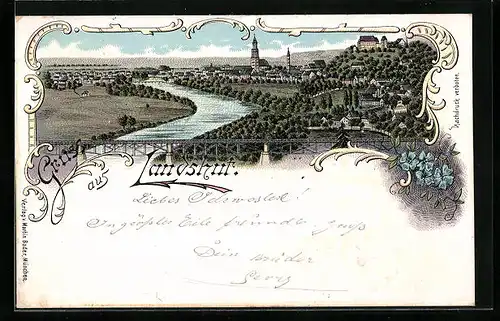 Gruss
aus
Landshut.
Nachdruck verboten.
Verlag v. Martin Bader, München.
Liebes Schwesterl!
In größter Eile freundl. Gruß
Dein Bruder
Georg